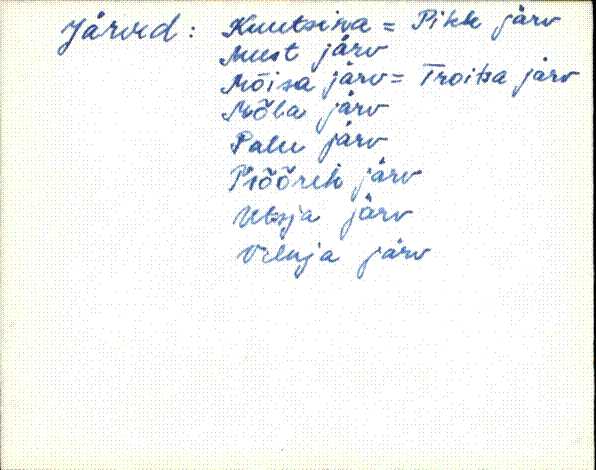 Järved: Kuutsina = Pikk järv
Must järv
Mõisa järv = Troitsa järv
Mõla järv
Palu järv
järv
järv
järv